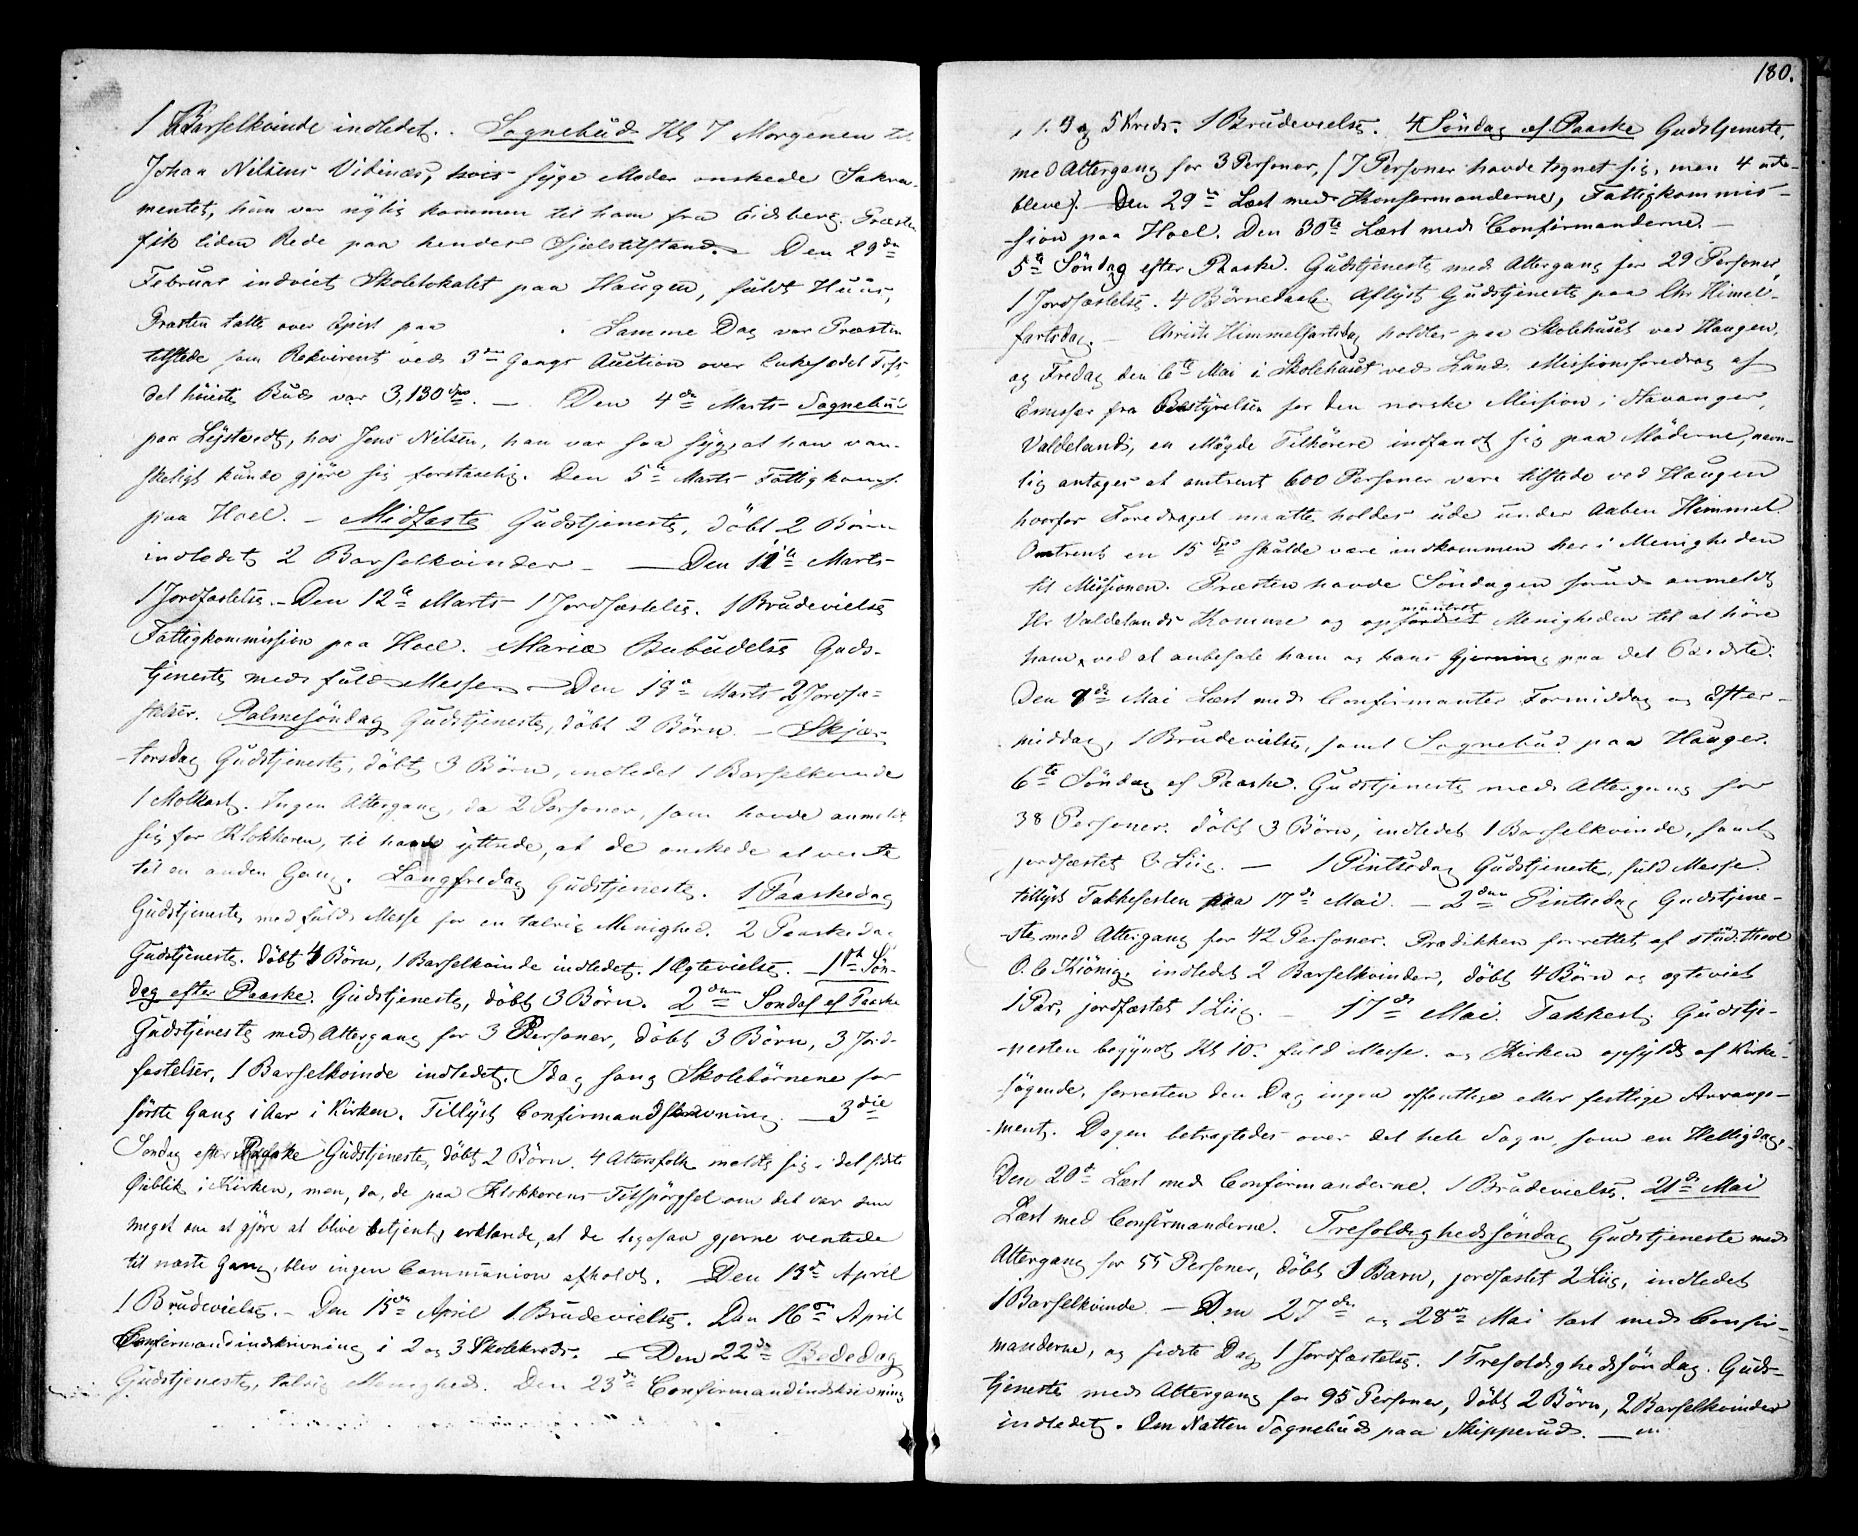 1 Barselkvinde indledet. Sognebud Kl 7 Morgenen til
Johan Nilsens Vidinæs, hvis syge Moder ønskede Sakra-
mentet, hun var nylig kommen til ham fra Eidsberg. Præsten
fik liden Rede paa hendes Sjælstilstand. — Den 29de
Februar indviet Skolelokalet paa Haugen, fuldt Huus,
Præsten talte over paa . Samme Dag var Præsten
tilstede som Rekvirent ved 3die Gangs Auction over
det høieste Bud var 3,130 Spd. — Den 4de Marts Sognebud
paa, hos Jens Nilsen, han var saa syg, at han van-
skeligt kunde gjøre sig forstaaelig. Den 5te Marts Fattigkoms.
paa Hoel. — Midfaste Gudstjeneste, döbt 2 Börn
indledet 2 Barselkvinder — Den 11te Marts
1 Jordfæstelse. — Den 12te Marts 1 Jordfæstelse. 1 Brudevielse
Fattigkommission paa Hoel. Mariæ Bebudelse Guds-
tjeneste med fuld Messe. — Den 19de Marts 2 Jordfæ-
stelser. Palmesöndag Gudstjeneste, döbt 2 Börn. — Skjær-
torsdag Gudstjeneste, döbt 3 Börn, indledet 1 Barselkvinde
1 Molkast. Ingen Altergang, da 2 Personer, som havde anmeldt
sig for Klokkeren, til ham yttrede, at de ønskede at vente
til en anden Gang. Langfredag Gudstjeneste. 1 Paaskedag
Gudstjeneste med fuld Messe for en talrig Menighed. 2 Paaskedag
Gudstjeneste. döbt 4 Börn, 1 Barselkvinde indledet. 1 Ægtevielse. — 1ste Sön-
dag efter Paaske. Gudstjeneste, döbt 3 Börn. 2den Söndag ef Paaske
Gudstjeneste med Altergang for 3 Personer, döbt 3 Börn, 3 Jord-
fæstelser, 1 Barselkvinde indledet. Idag sang Skolebörnene for
förste Gang i Aar i Kirken. Tillyst Confirmandskrivning. — 3die
Söndag efter Paaske Gudstjeneste, döbt 2 Börn. 4 Altersfolk meldte sig i det sidste
Öieblik i Kirken, men, da, de paa Klokkerens Tilspörgsel om det var dem
meget om at gjöre at blive betjent, erklærede, at de ligesaa gjerne ventede
til næste Gang, blev ingen Communion afholdt. Den 13de April
1 Brudevielse. — Den 15de April 1 Brudevielse. Den 16de April
Confirmandindskrivning i 2 og 3 Skolekreds. — Den 22de Bededag
Gudstjeneste, talrig Menighed. Den 23de Confirmandindskrivning
180.
i 1. 3 og 5 Kreds. 1 Brudevielse. 4 Söndag ef. Paaske Gudstjeneste,
med Altergang for 3 Personer, (7 Personer havde tegnet sig, men 4 ude-
bleve). — Den 29de Læst med Konfirmanderne, Fattigkommis-
sion paa Hoel. Den 30te Læst med Confirmanderne. —
5te Söndag efter Paaske. Gudstjeneste med Altergang for 29 Personer,
1 Jordfæstelse. 4 Börnedaab. Aflyst Gudstjeneste paa Chr Himel-
fartsdag. — Christi Himmelfartsdag holdtes paa Skolehuset ved Haugen,
og Fredag den 6te Mai i Skolehuset ved Lund Missionsforedrag af
Emissær fra Bestyrelsen for den norske Mission i Stavanger,
Valdeland, en Mægde Tilhörere indfandt sig paa Möderne, nem-
lig antages at omtrent 600 Personer vare tilstede ved Haugen
hvorfor Foredraget maatte holdes ude under aaben Himmel.
Omtrent en 15 Spd skulde være indkommen her i Menigheden
til Missionen. Præsten havde Söndagen forud anmeldt
Hr Valdelands Komme og opmuntret Menigheden til at höre
ham, ved at anbefale ham og hans Gjerning paa det Bedste.
Den 7de Mai Læst med Confirmanter Formiddag og Efter-
middag, 1 Brudevielse, samt Sognebud paa Hauger.
6te Söndag ef Paaske. Gudstjeneste med Altergang for
38 Personer. döbt 3 Börn, indledet 1 Barselkvinde, samt
jordfæstet 2 Liig. — 1 Pintsedag Gudstjeneste, fuld Messe.
tillyst Takkefesten paa 17de Mai. — 2den Pintsedag Gudstjene-
ste med Altergang for 42 Personer. Prædikken forrettet af stud. theol
O. C Kiönig, indledet 2 Barselkvinder, döbt 4 Börn og ægteviet
1 Par, jordfæstet 1 Liig. — 17de Mai. Takkefest. Gudstje-
nesten begyndt Kl 10. fuld Messe. og Kirken opfyldt af Kirke-
sögende, forresten den Dag ingen offentlige eller festlige Arrange-
ment. Dagen betragtedes over det hele Sogn, som en Helligdag.
Den 20de Læst med Confirmanderne. 1 Brudevielse. 21de Mai
Læst med Confirmanderne. Trefoldighedssöndag Gudstjeneste med
Altergang for 55 Personer, döbt 1 Barn, jordfæstet 2 Liig, indledet
1 Barselkvinde. — Den 27de og 28de Mai læst med Confir-
manderne, og sidste Dag 1 Jordfæstelse. 1 Trefoldighedssöndag. Guds-
tjeneste med Altergang for 95 Personer, döbt 2 Börn, 2 Barselkvinder
indledet. Om Natten Sognebud paa Skipperud. —